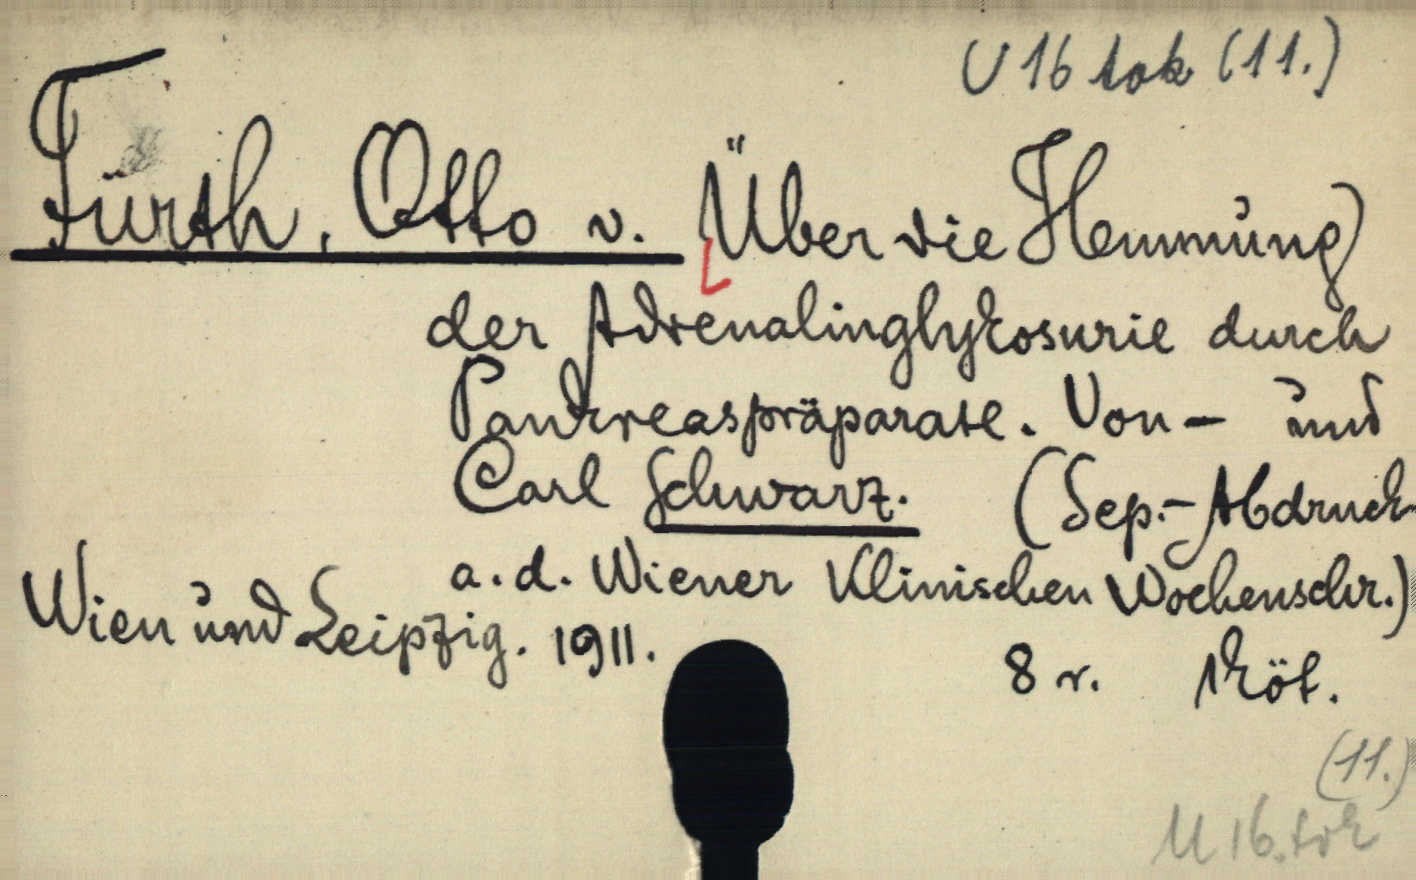 U 16 tok (11.)
Fürth, Otto v. Über die Hemmung
der Adrenalinglykosurie durch
Pankreaspräparate. Von – und
Carl Schwarz. (Sep.-Abdruck
a. d. Wiener Klinischen Wochenschr.)
Wien und Leipzig. 1911.
8 r. 1 köt.
(11.)
U 16. tok